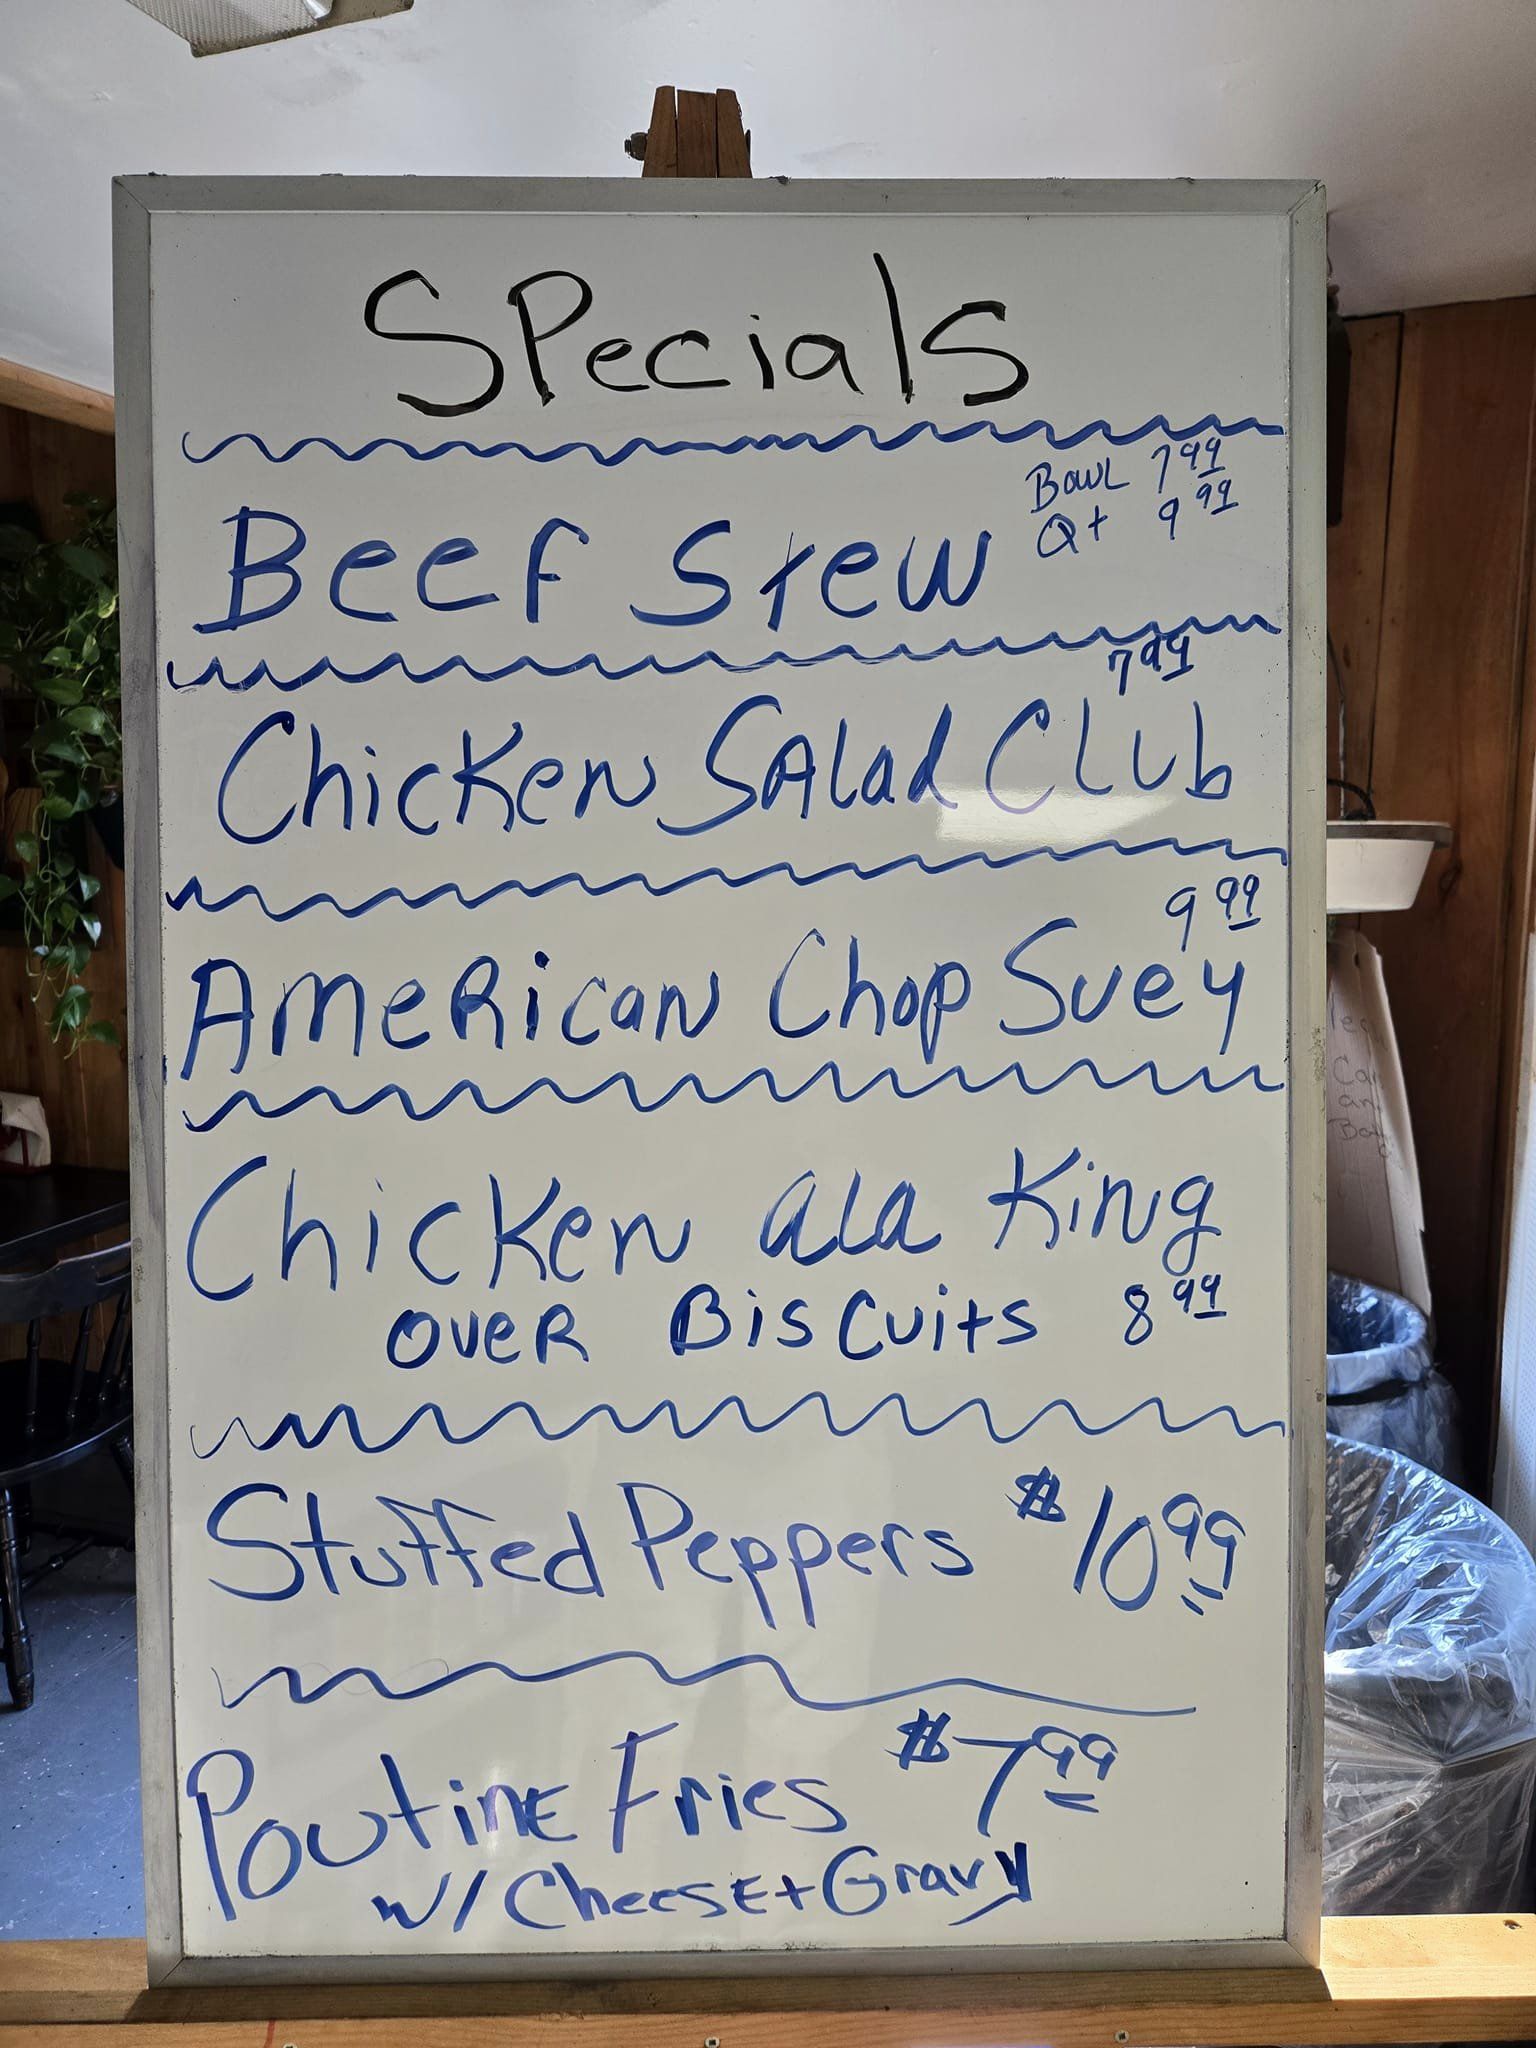 Specials
Bowl 7.99
Beef Stew Qt 9.99
7.99
Chicken Salad Club
9.99
American Chop Suey
Chicken ala King
over Biscuits 8.99
Stuffed Peppers $10.99
Poutine Fries $7.99
w/ Cheese + Gravy